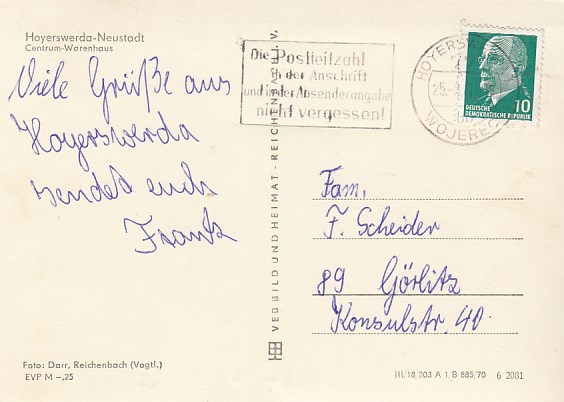 Hoyerswerda-Neustadt
Centrum-Warenhaus
Viele Grüße aus
Hoyerswerda
sendet euch
Frank
Foto: Darr, Reichenbach (Vogtl.)
EVP M –,25
VEB BILD UND HEIMAT · REICHENBACH i. V.
Die Postleitzahl
in der Anschrift
und in der Absenderangabe
nicht vergessen!
25.
WOJEREC
10
DEUTSCHE
DEMOKRATISCHE REPUBLIK
Fam.
F. Scheider
89 Görlitz
Konsulstr. 40
III/18/203 A 1/B 885/70 6 2081